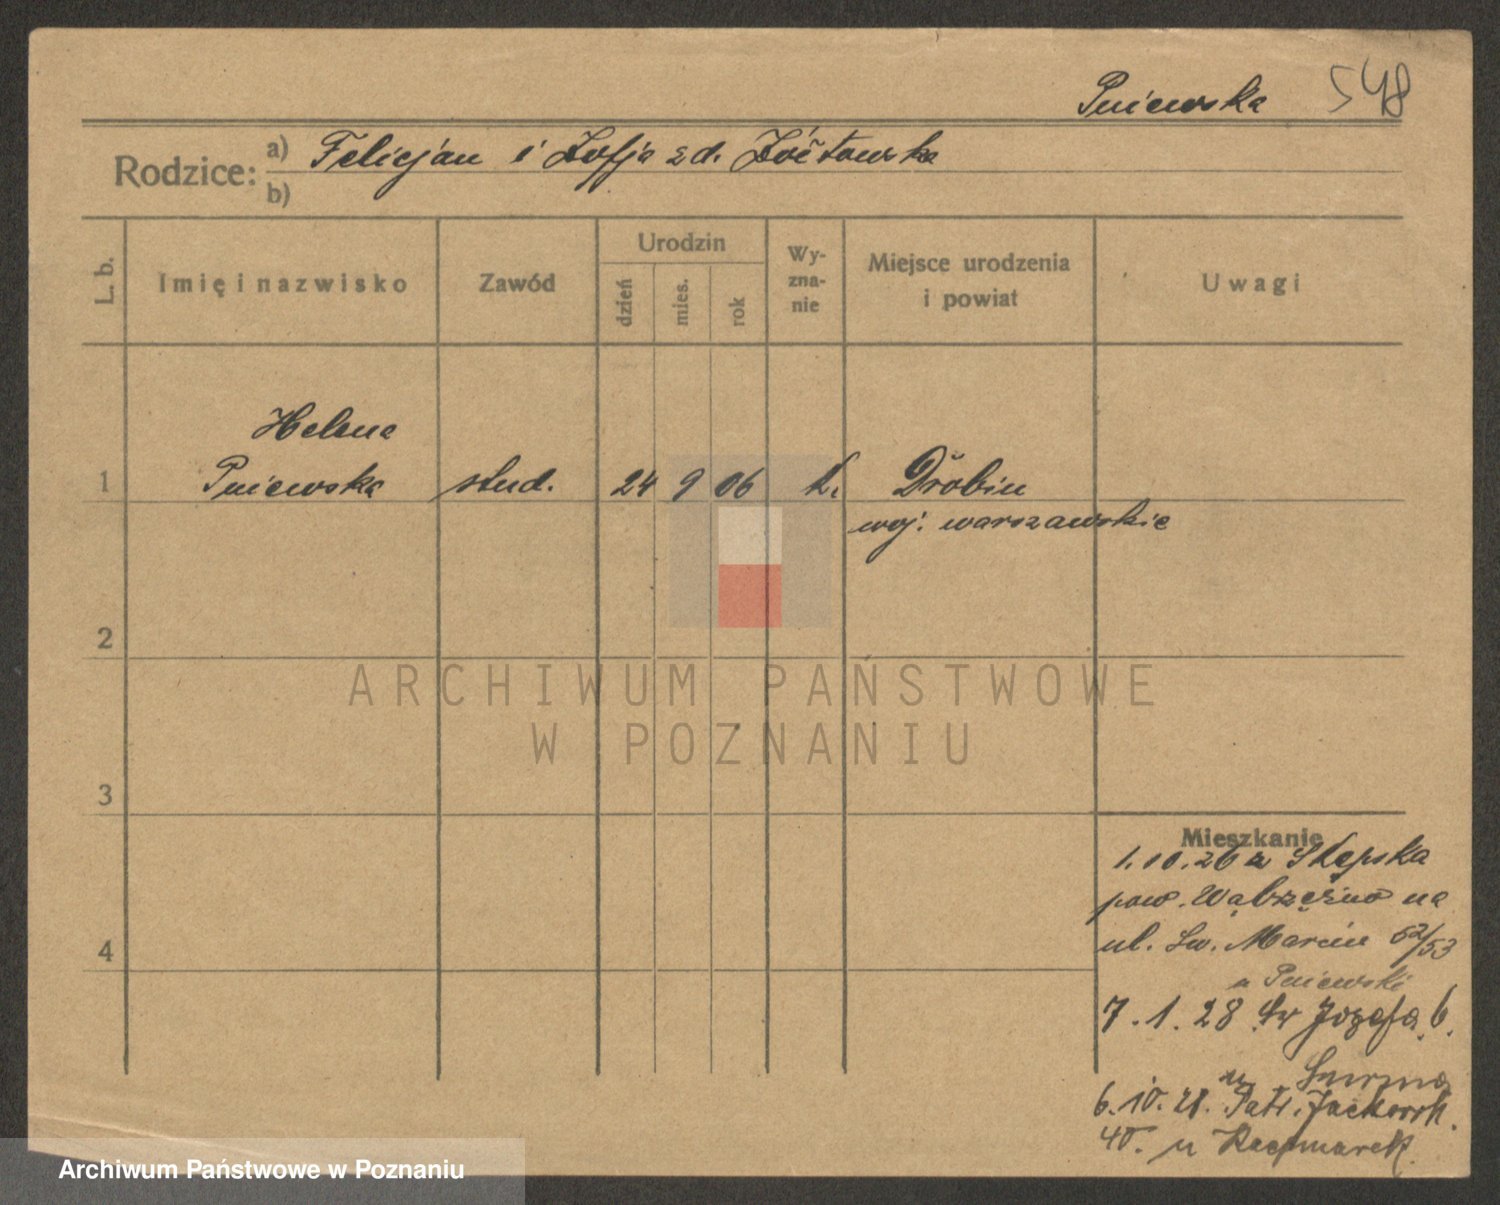 Pniewska 548
Rodzice: a) Felicjan i Zofja z d. Żółtowska
b)
L. b. Imię i nazwisko Zawód Urodzin dzień mies. rok Wyznanie Miejsce urodzenia i powiat Uwagi
Helena
1 Pniewska stud. 24 9 06 k. Drobin
woj. warszawskie
2
ARCHIWUM PAŃSTWOWE
W POZNANIU
3
Mieszkanie
1.10.26 z
pow. Wąbrzeźno na
ul. Św. Marcin 52/53
u Pniewski
7.1.28 Św Józefa 6.
u
6.10.28. Jackowsk.
40. u Kaczmarek
Archiwum Państwowe w Poznaniu